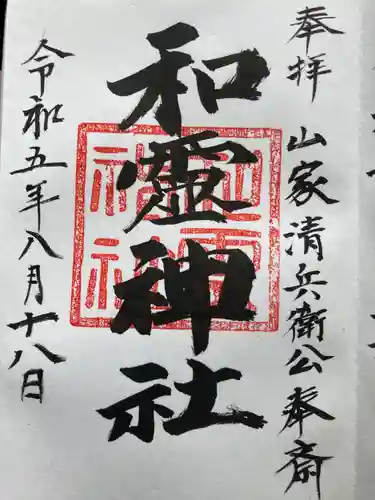 奉拝 山家清兵衛公奉斎
和霊神社
和霊神社
令和五年八月十八日